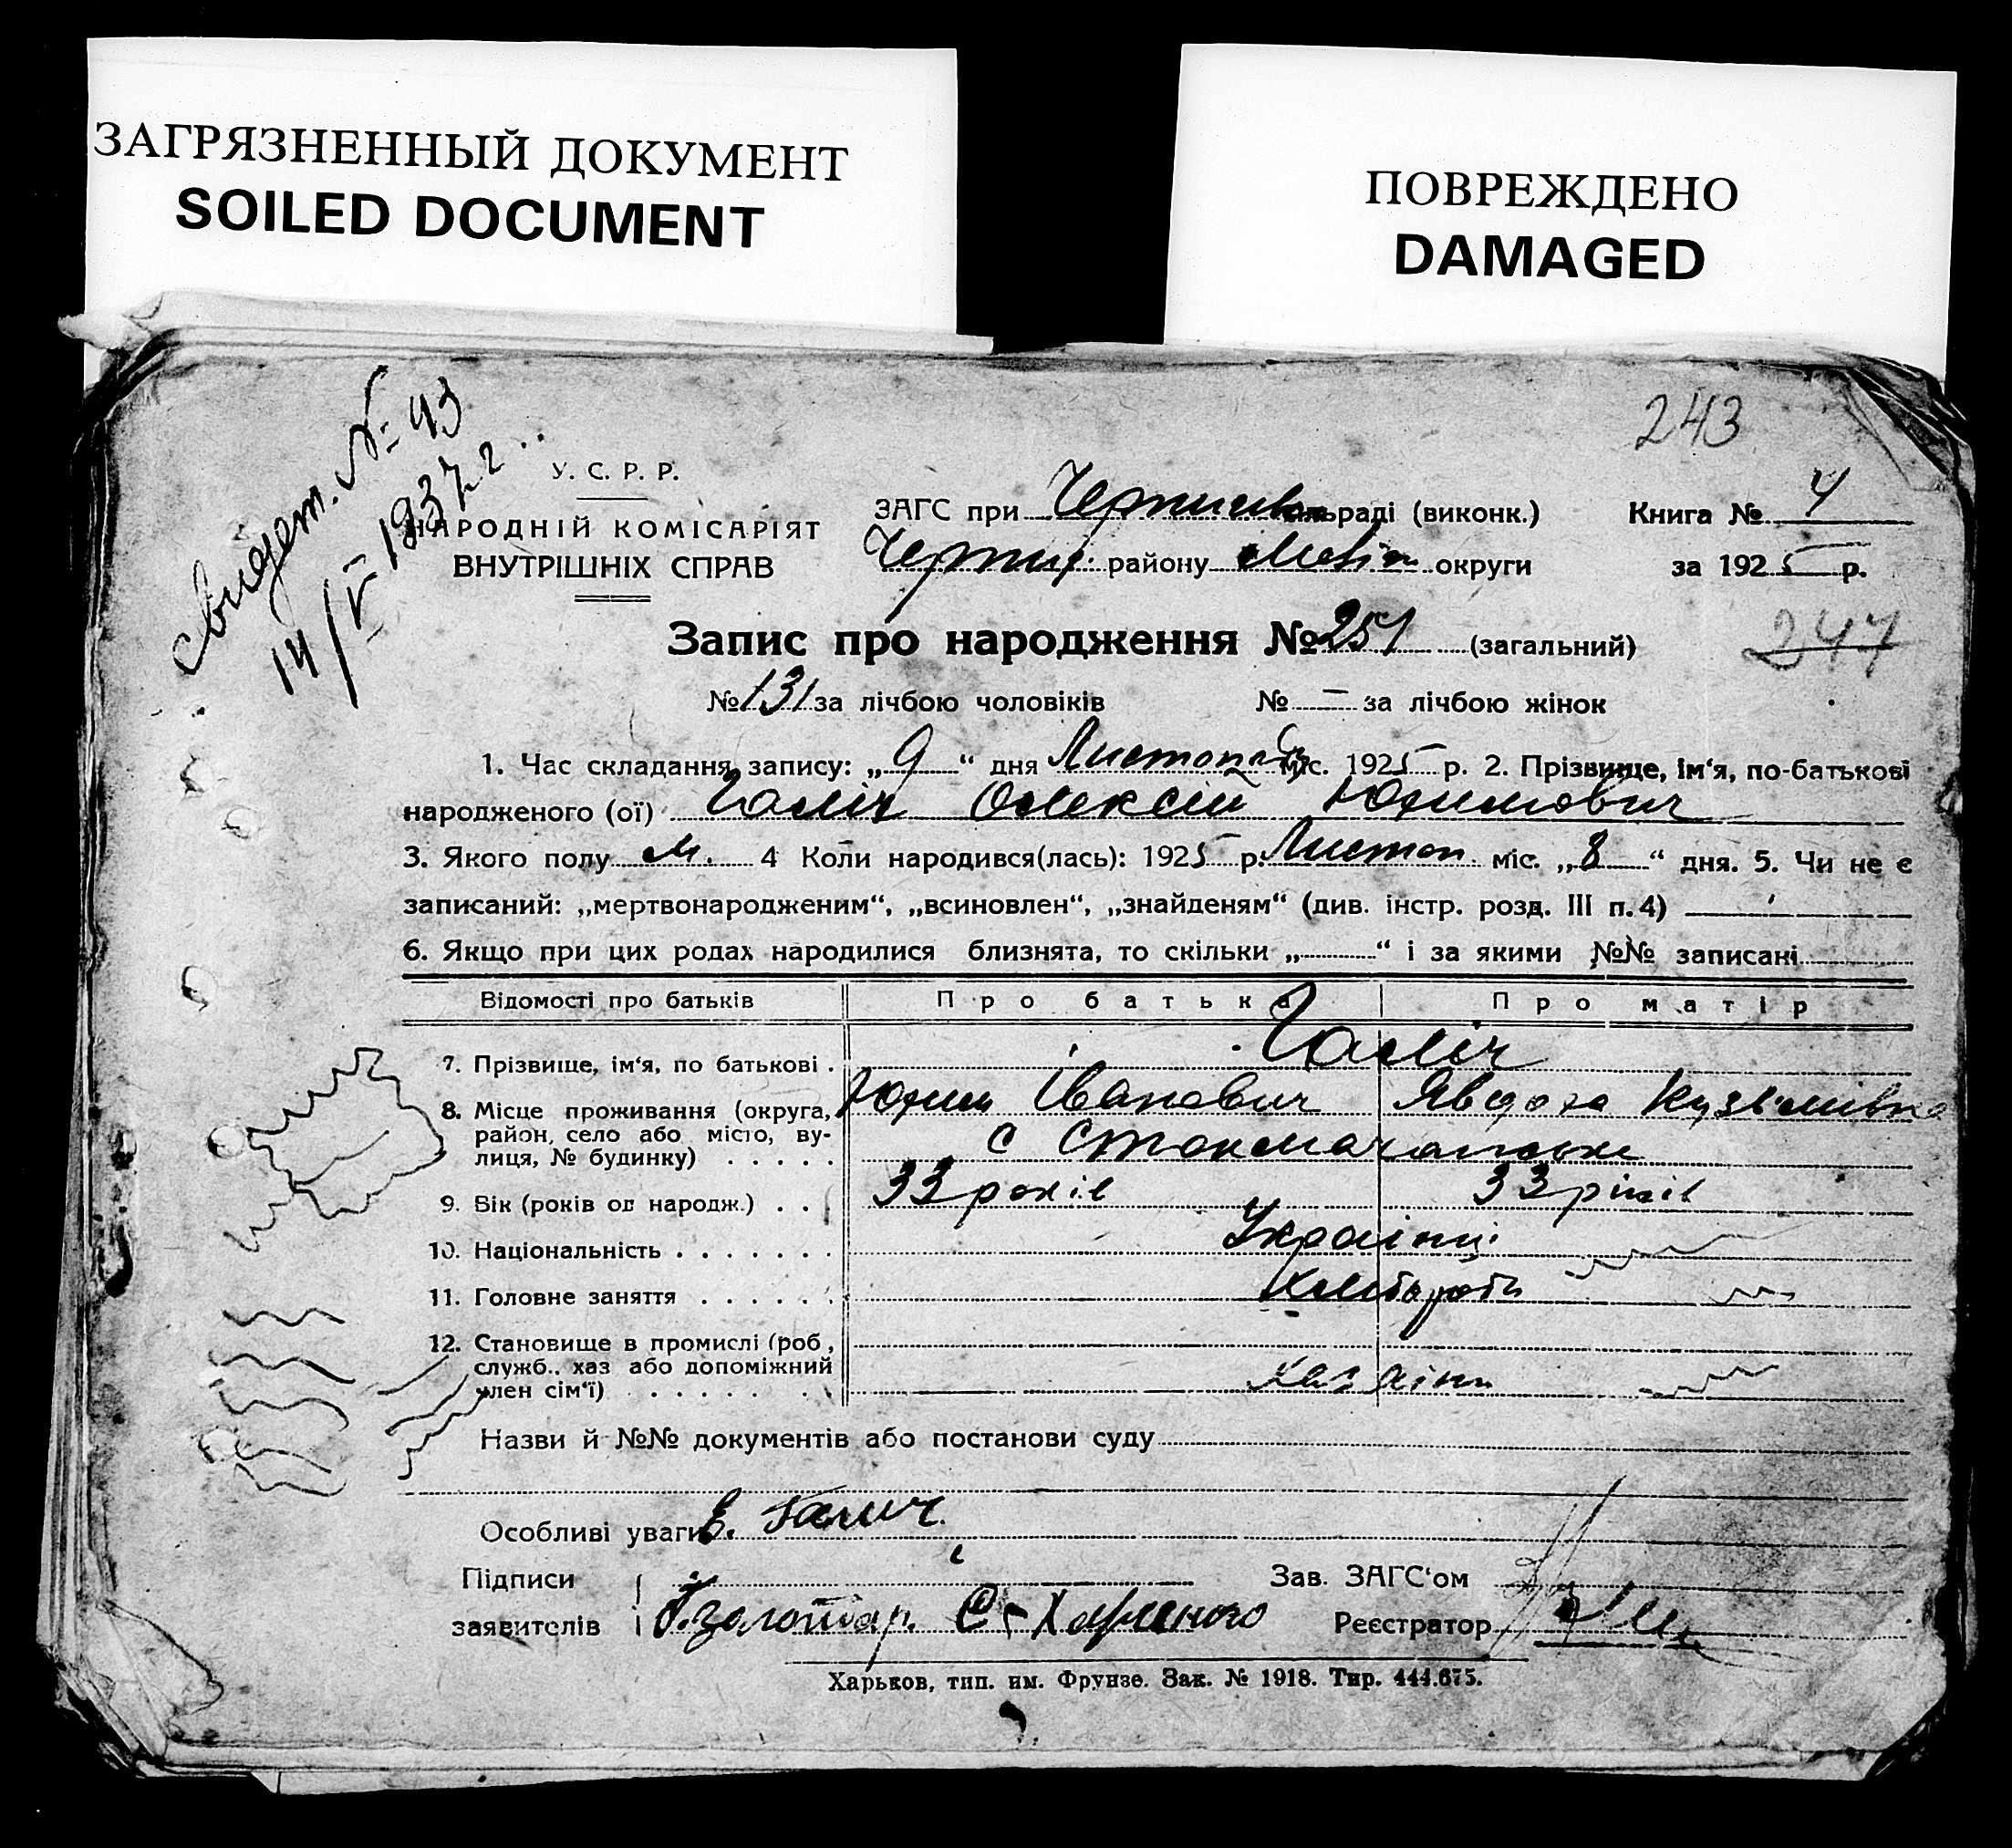 ЗАГРЯЗНЕННЫЙ ДОКУМЕНТ
SOILED DOCUMENT
ПОВРЕЖДЕНО
DAMAGED
Свидет. № 93
14/V 1937 г.
243
У. С. Р. Р.
НАРОДНІЙ КОМІСАРІЯТ
ВНУТРІШНІХ СПРАВ
ЗАГС при раді (виконк.) Книга № 4
району округи за 1925 р.
Запис про народження № 251 (загальний) 247
№ 131 за лічбою чоловіків № – за лічбою жінок
1. Час складання запису: „9“ дня Листопад міс. 1925 р. 2. Прізвище, ім‘я, по-батькові
народженого (ої) Галіч Олексій Юхимович
3. Якого полу м. 4 Коли народився(лась): 1925 р. Листоп міс. „8“ дня. 5. Чи не є
записаний: „мертвонародженим“, „всиновлен“, „знайденям“ (див. інстр. розд. III п. 4)
6. Якщо при цих родах народилися близнята, то скільки „ “ і за якими №№ записані
Відомості про батьків Про батька Про матір
7. Прізвище, ім‘я, по батькові . Галіч
Юхим Іванович Явдоха Кузьмівна
8. Місце проживання (округа, район, село або місто, ву-
лиця, № будинку) . . . . . с
9. Вік (років од народж.) . . 33 років 33 років
10. Національність . . . . . . . Українці
11. Головне заняття . . . . . . Хлібороби
12. Становище в промислі (роб, служб., хаз або допоміжний
член сім‘ї) . . . . . . . . Хазаїни
Назви й №№ документів або постанови суду
Особливі уваги Е. Галич
Підписи Зав. ЗАГС‘ом
заявителів Реєстратор
Харьков, тип. им. Фрунзе. Зак. № 1918. Тир. 444.675.